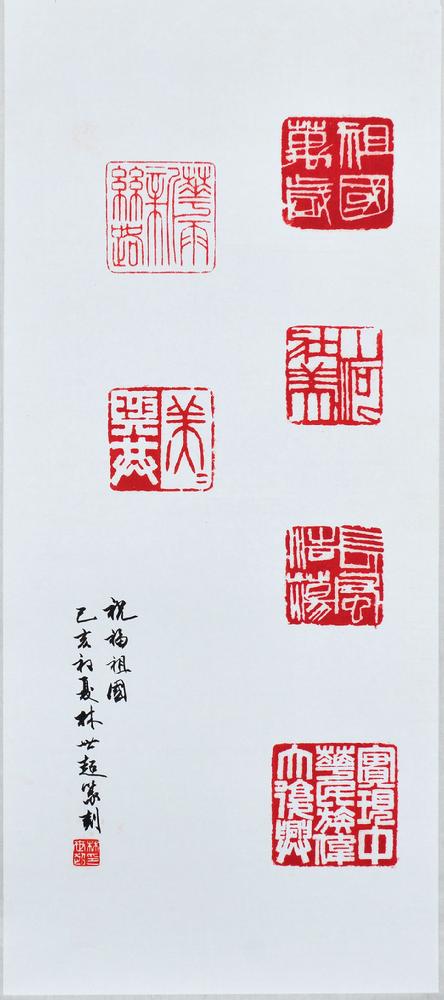 祖國萬歲
山河壯美
長風浩蕩
實現中華民族偉大復興
華雨新絲路
美美與共
祝福祖國
己亥初夏林世超篆刻